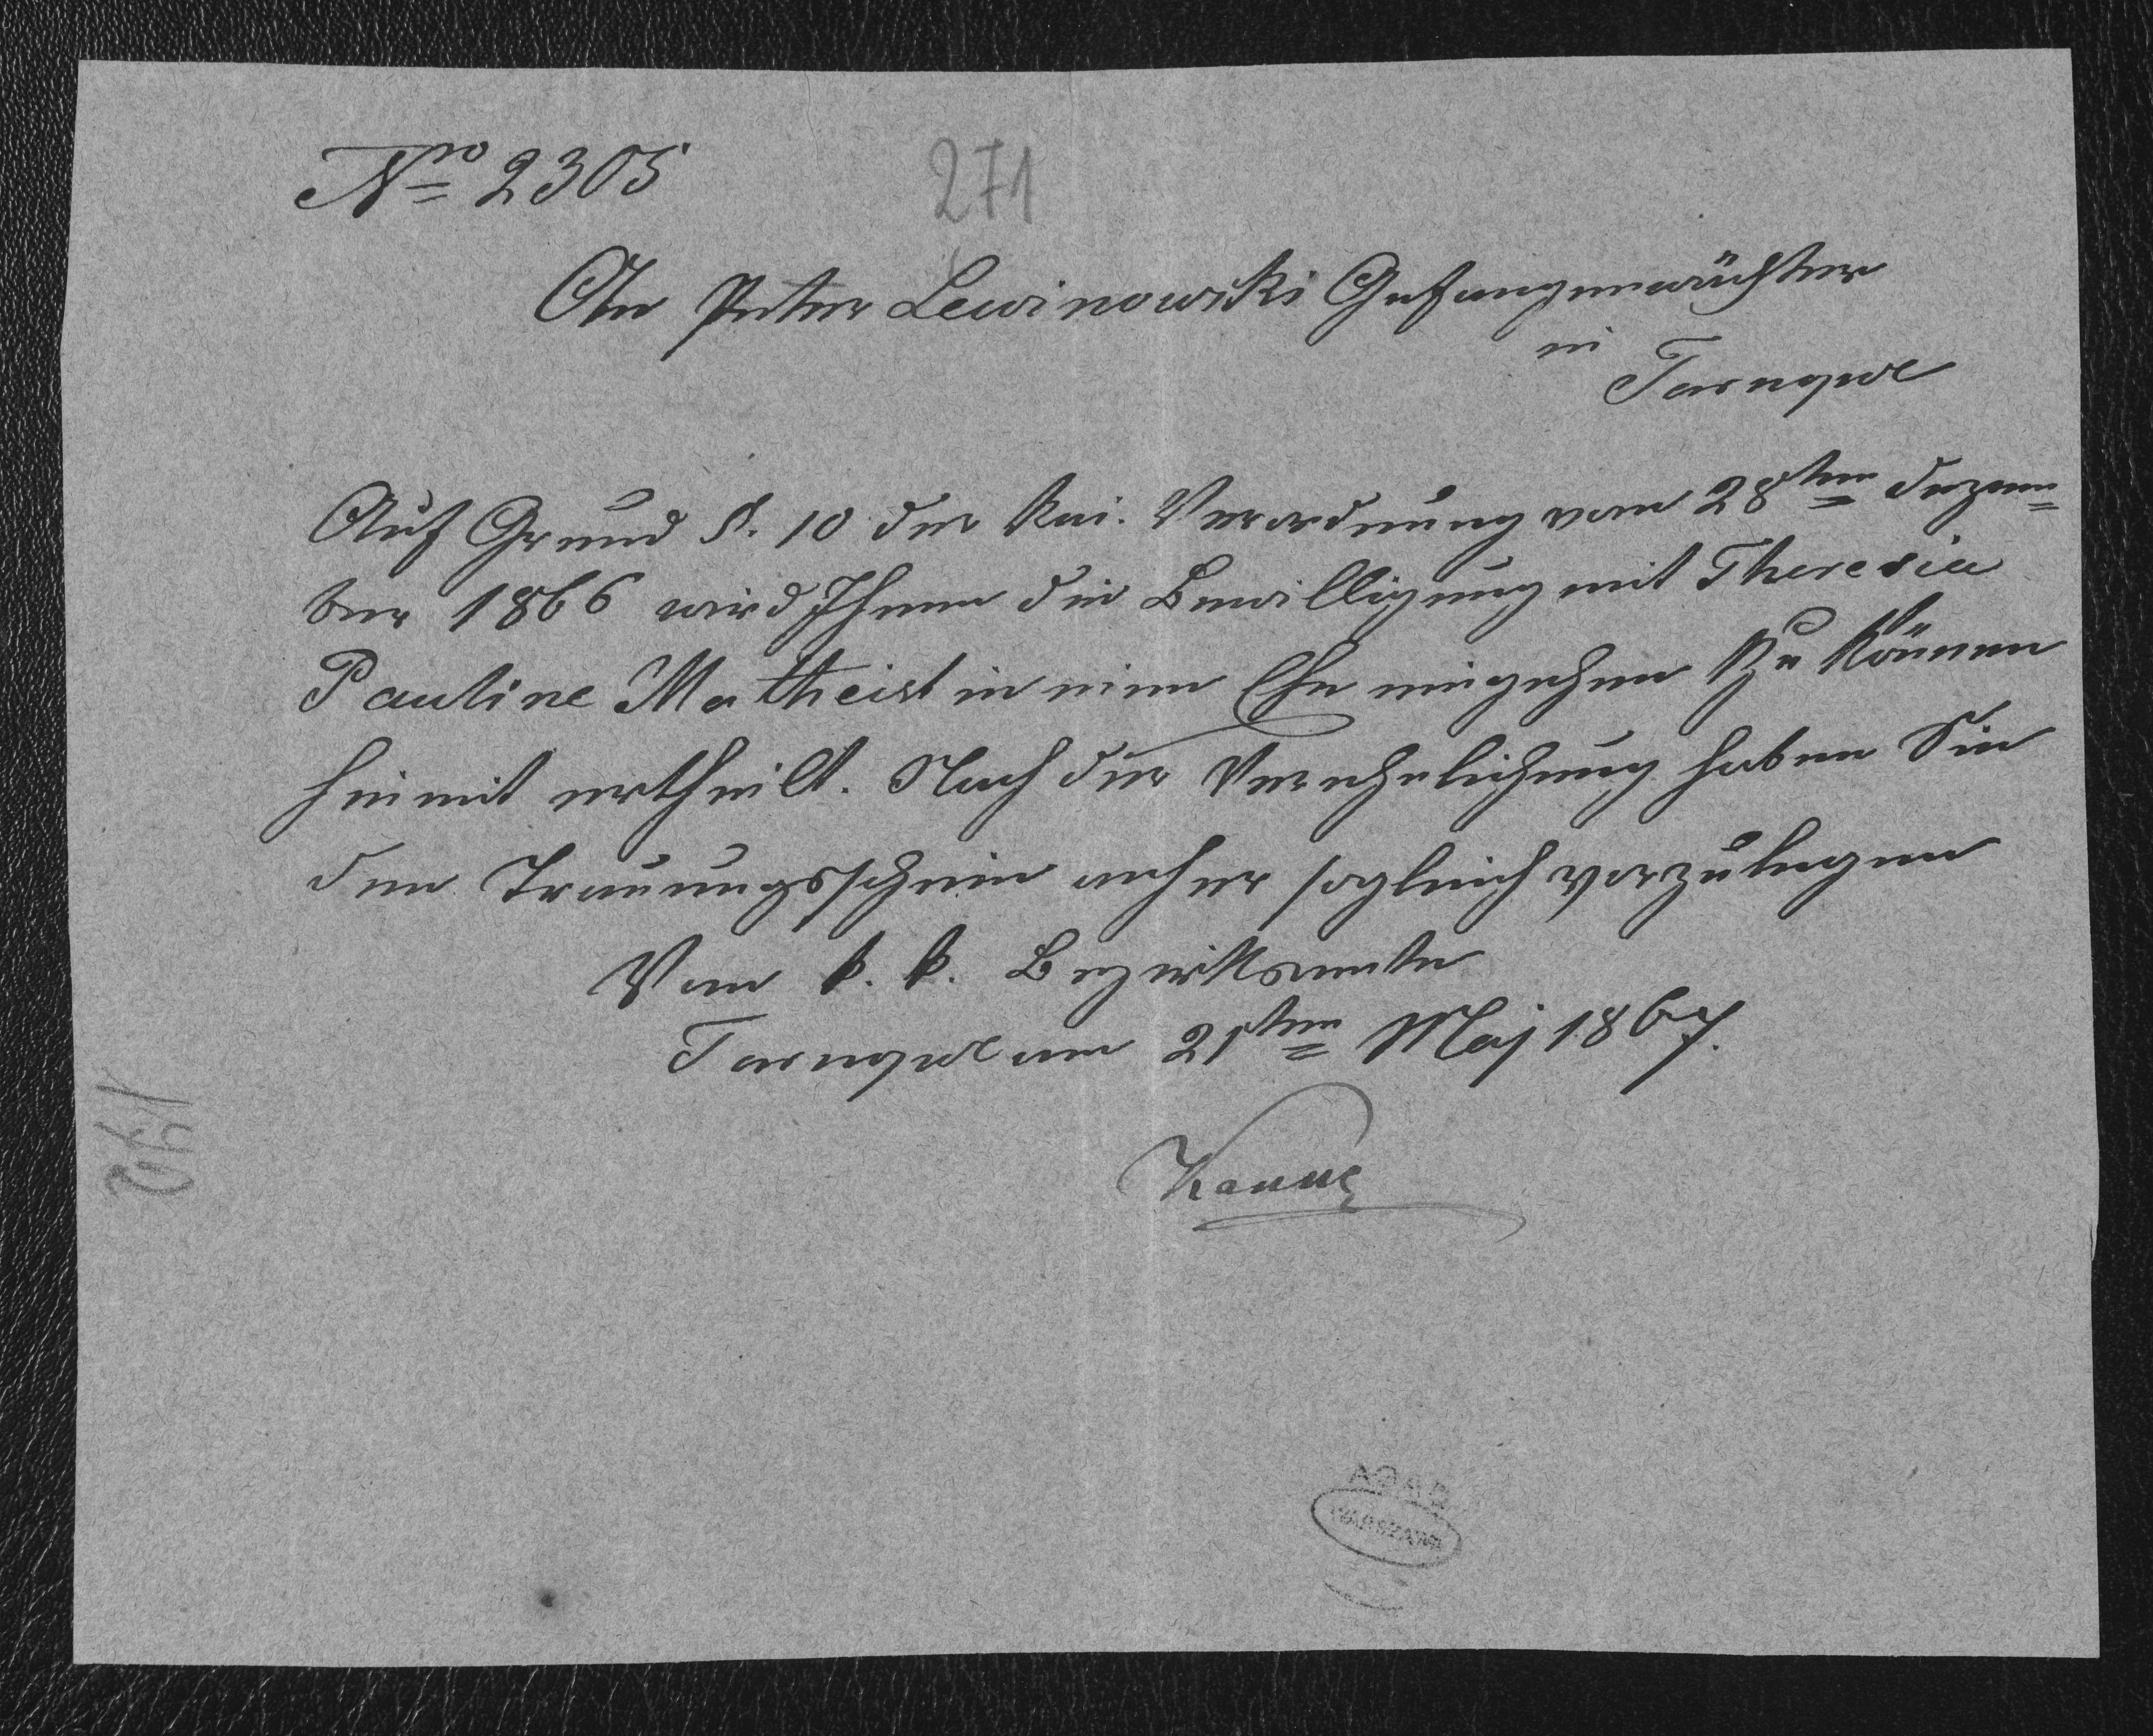 Nro 2305
271
An Peter Lewinowski Gefangenwächter
in
Tarnopol
Auf Grund §. 10 der kai. Verordnung vom 28ten Dezem=
ber 1866 wird Ihnen die Bewilligung mit Theresia
Pauline Matheist in eine Ehe eingehen zu können
hiemit ertheilt. Nach der Verehelichung haben Sie
den Trauungsschein anher sogleich vorzulegen
Vom k. k. Bezirksamte
Tarnopol am 21ten Maj 1867.
AGAD
WARSZAWA